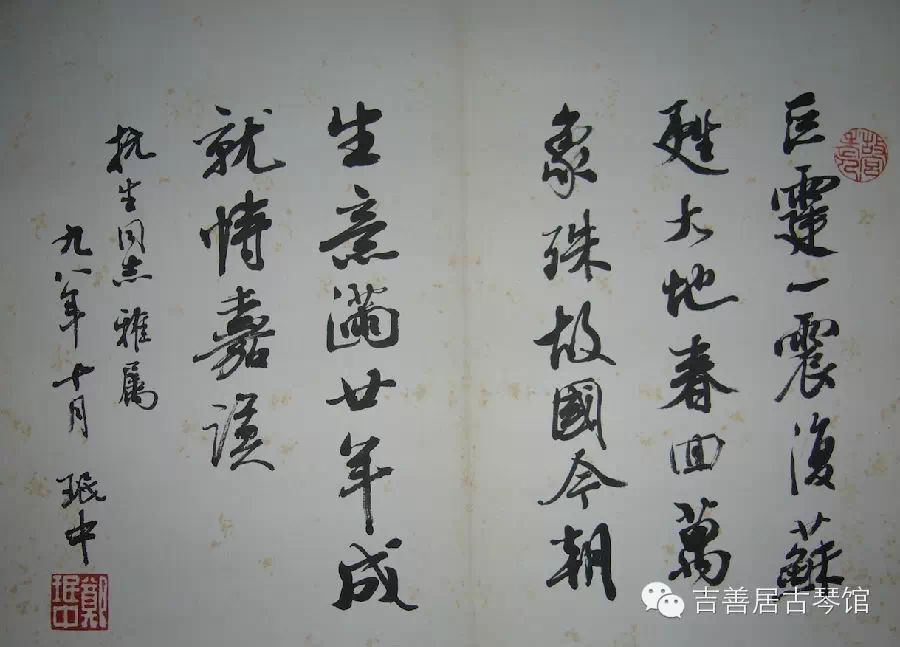 巨霆一震復蘇
甦大地春回萬
象殊故國今朝
生意滿廿年成
就恃嘉謨
抗生同志雅属
九八年十月 珉中
鄭珉中
吉善居古琴馆